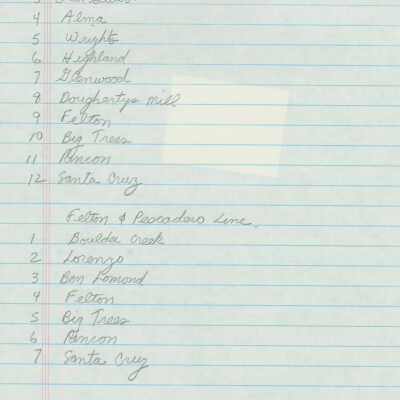 4 Alma
5 Wrights
6 Highland
7 Glenwood
8 Doughertys Mill
9 Felton
10 Big Trees
11 Rincon
12 Santa Cruz
Felton & Pescadero Line.
1 Boulder Creek
2 Lorenzo
3 Ben Lomond
4 Felton
5 Big Trees
6 Rincon
7 Santa Cruz